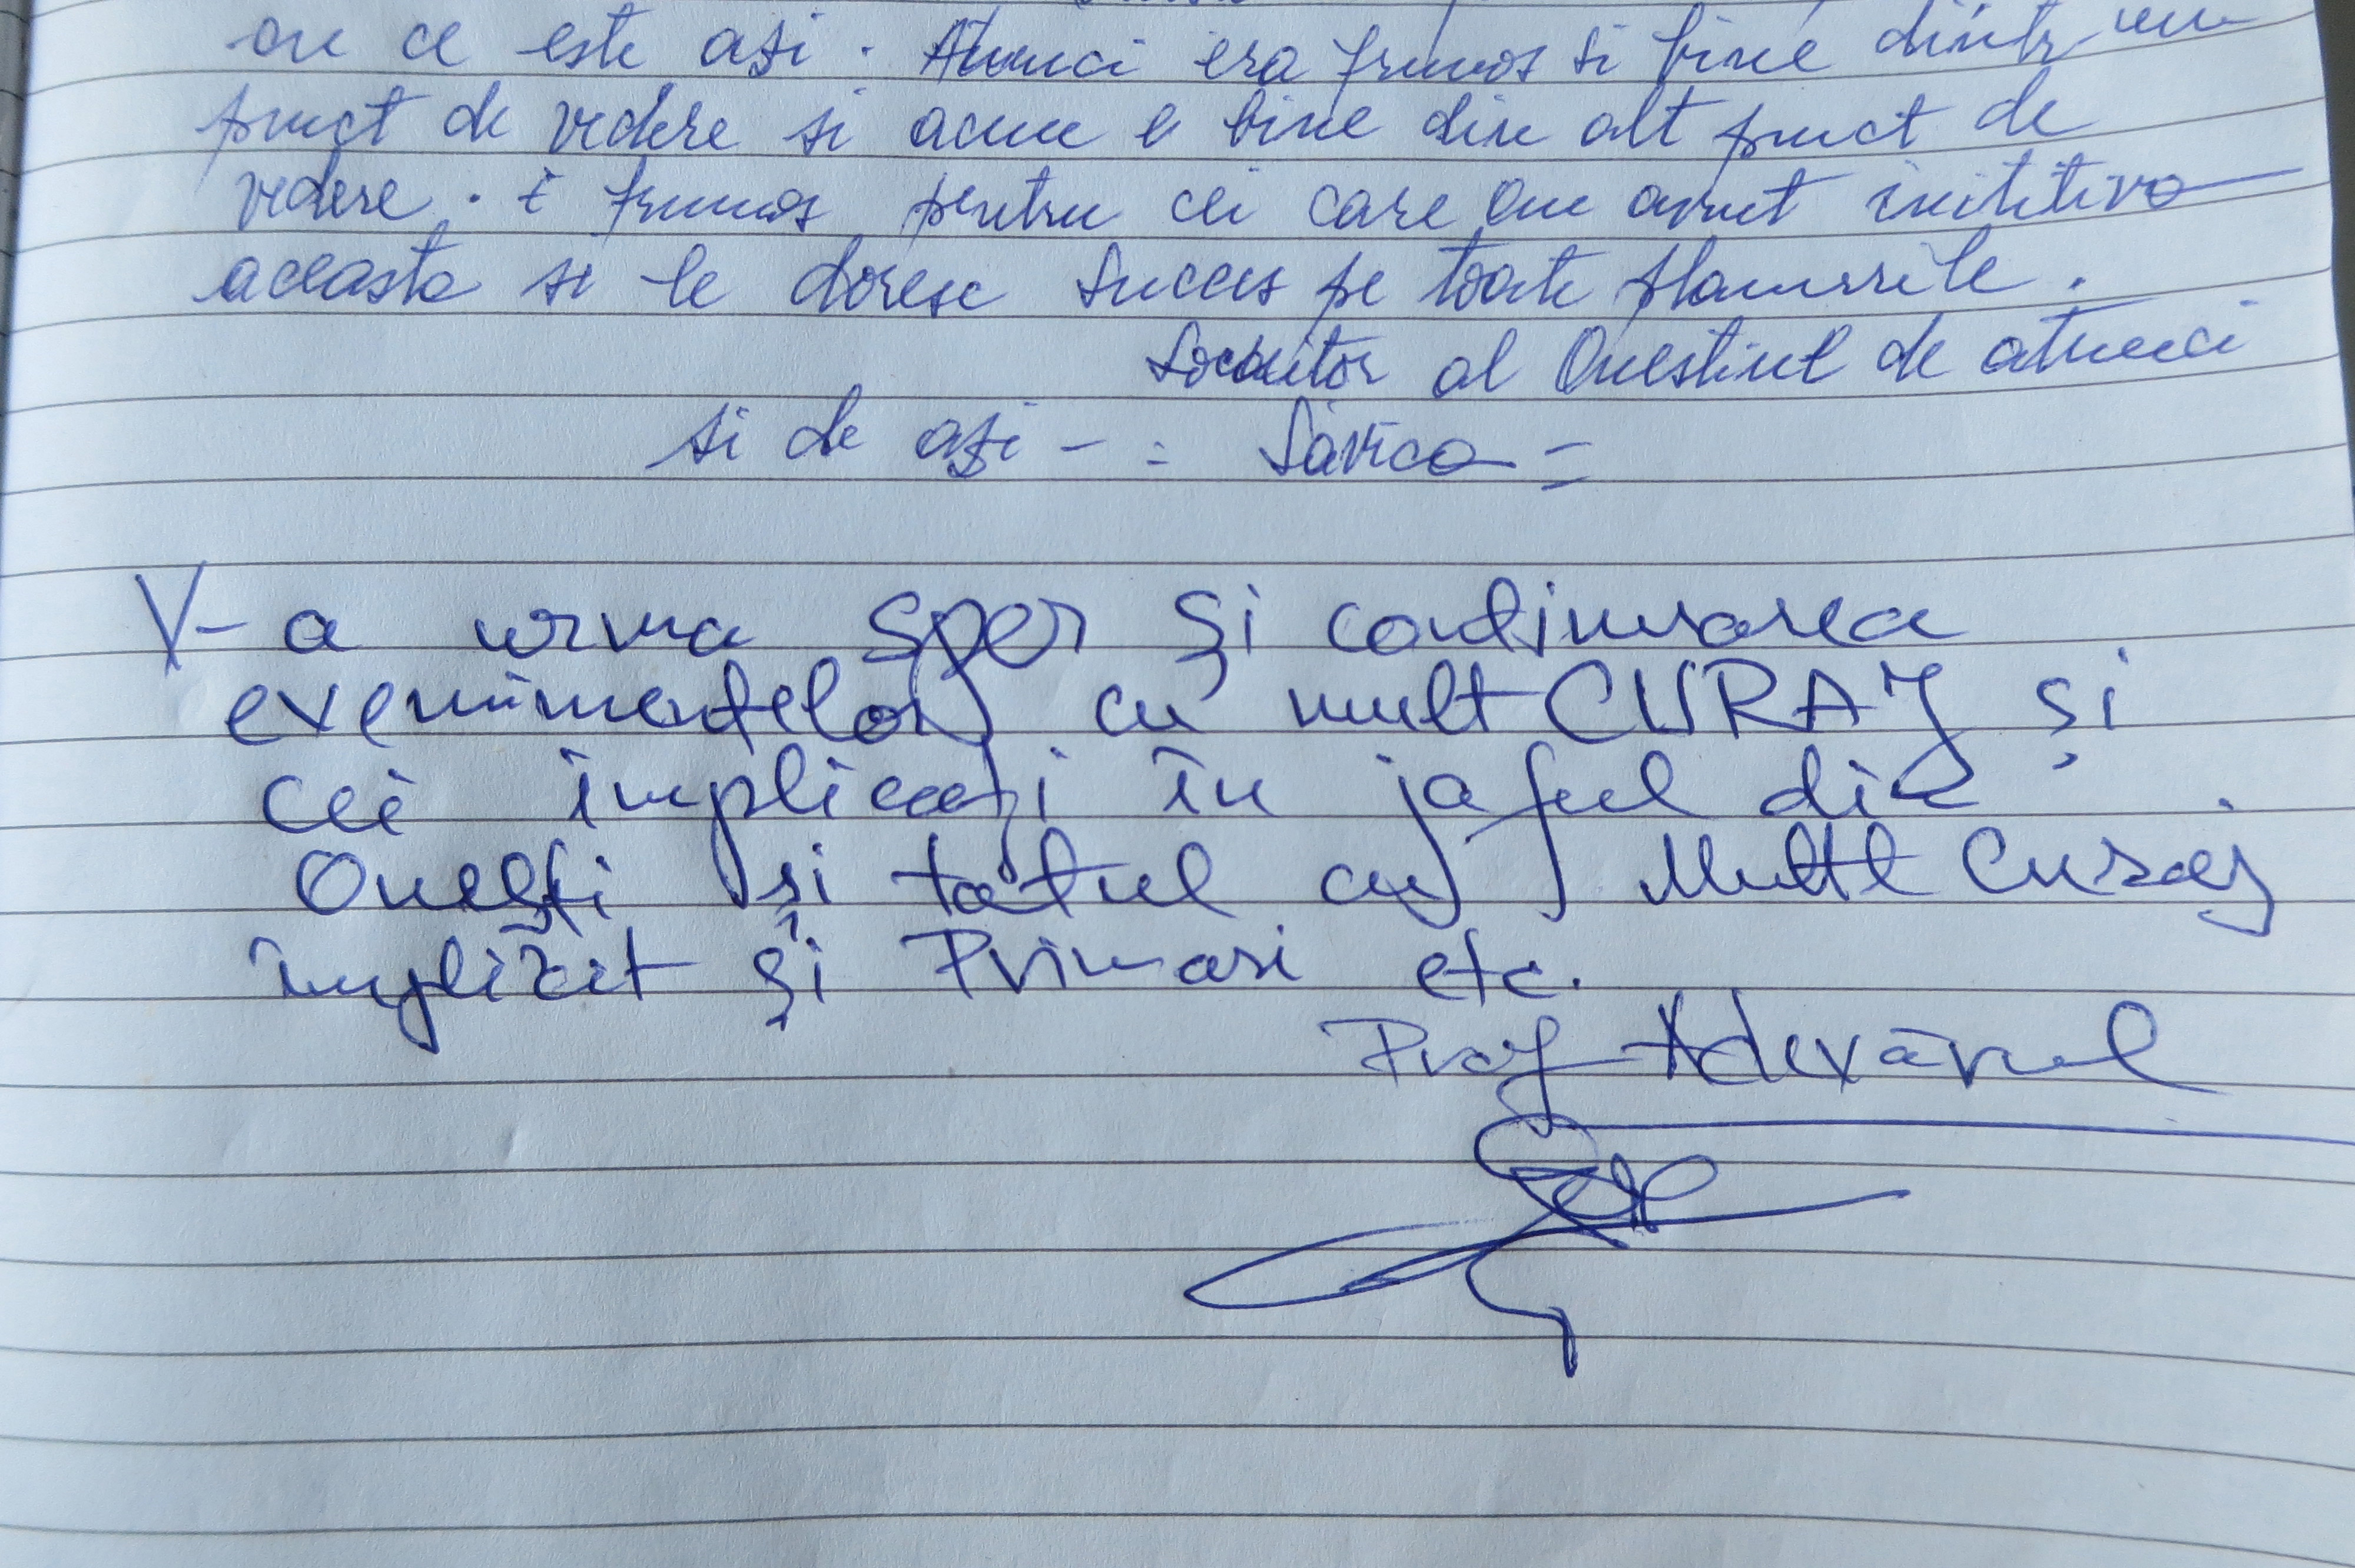 cu ce este azi. Atunci era frumos si bine dintr un
punct de vedere si acum e bine din alt punct de
vedere. E frumos pentru cei care au avut inititiva
aceasta si le doresc succes pe toate planurile.
Locuitor al Onestiul de atunci
si de azi - = Săvica =
V-a urma sper și continuarea
evenimentelor cu mult CURAJ și
cei implicați în jaful din
Onești și totul cu Mult Curaj
implicit și Primari etc.
Prof Adevărul